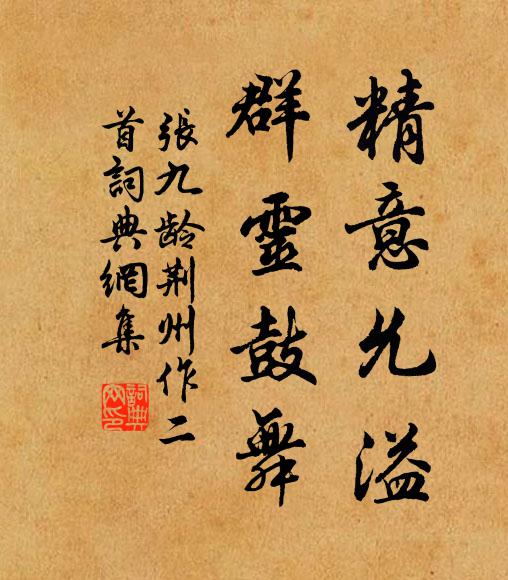 精意允溢
群靈鼓舞
張九龄荆州作二
首詞典網集
詞典
网印